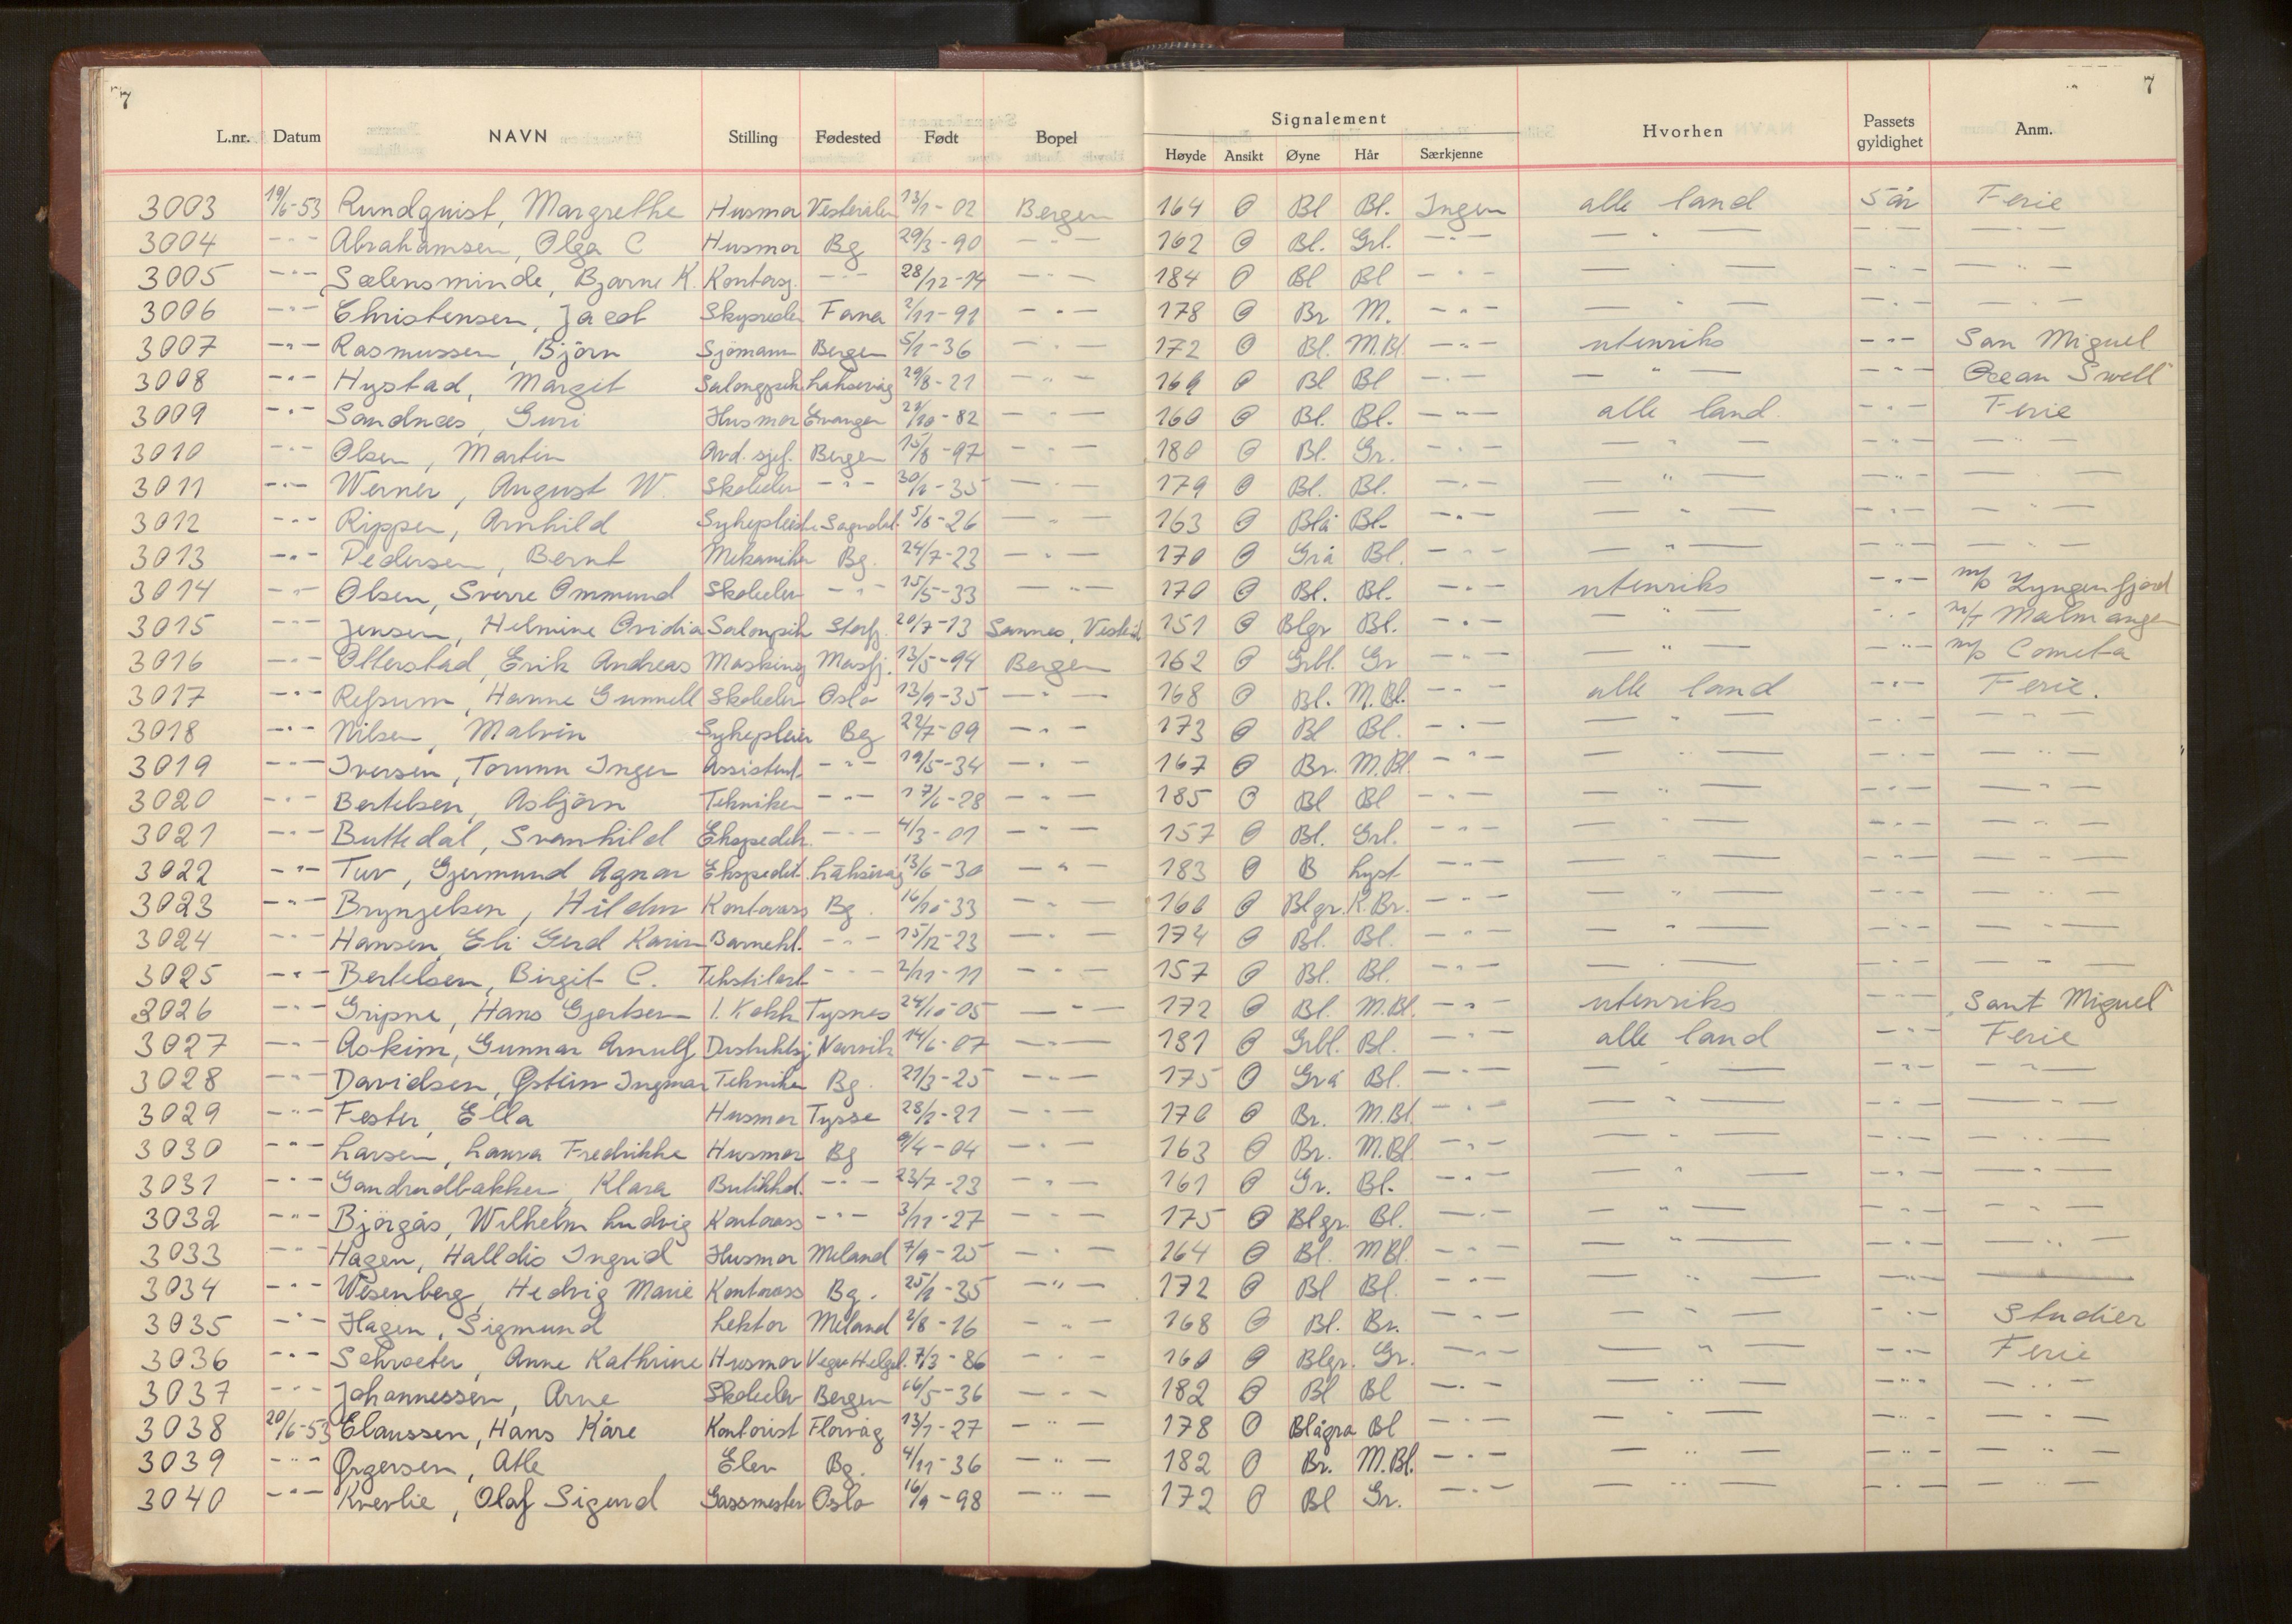 7 7
L.nr. Datum NAVN Stilling Fødested Født Bopel Signalement Hvorhen Passets gyldighet Anm.
Høyde Ansikt Øyne Hår Særkjenne
3003 19/6-53 Rundquist, Margrethe Husmor Vesterålen 13/1-02 Bergen 164 O Bl Bl. Ingen alle land 5 år Ferie
3004 -"- Abrahamsen, Olga C Husmor Bg 29/3-90 -"- 162 O Bl. Grl. -"- -"- -"- -"-
3005 -"- Sælensminde, Bjarne K. Kontorsj. -"- 28/12-14 -"- 184 O Bl Bl -"- -"- -"- -"-
3006 -"- Christensen, Jacob Fana 2/11-91 -"- 178 O Br M. -"- -"- -"- -"-
3007 -"- Rasmussen, Björn Sjömann Bergen 5/1-36 -"- 172 O Bl. M.Bl. -"- utenriks -"- San Miguel
3008 -"- Hystad, Margit Laksevåg 29/8-21 -"- 169 O Bl Bl -"- -"- -"- Ocean Swell
3009 -"- Sandnes, Guri Husmor Evanger -"- 160 O Bl. Bl. -"- alle land. -"- Ferie
3010 -"- Olsen, Martin Avd. sjef. Bergen 15/8-97 -"- 180 O Bl. Gr. -"- -"- -"- -"-
3011 -"- Werner, August W. Skoleelev -"- -"- 179 O Bl. Bl. -"- -"- -"- -"-
3012 -"- Rippen, Arnhild Sykepleier Sogndal 5/8-26 -"- 163 O Blå Bl. -"- -"- -"- -"-
3013 -"- Pedersen, Bernt Mekaniker Bg. 24/7-23 -"- 170 O Grå Bl. -"- -"- -"- -"-
3014 -"- Olsen, Sverre Ommund Skoleelev -"- 15/5-33 -"- 170 O Bl. Bl. -"- utenriks -"- m/s Lyngenfjord
3015 -"- Jensen, Helmine Ovidia Salongpik 20/7-13 151 O Blgr Bl. -"- -"- -"- m/t Malmanger
3016 -"- Otterstad, Erik Andreas Masking Masfj. 13/5-94 Bergen 162 O Grbl. Gr -"- -"- -"- m/s Cometa
3017 -"- Refsum, Hanne Gunnell Skoleelev Oslo 13/9-35 -"- 168 O Bl. M.Bl. -"- alle land -"- Ferie.
3018 -"- Nilsen, Malvin Sykepleier Bg 22/7-09 -"- 173 O Bl Bl. -"- -"- -"- -"-
3019 -"- Iversen, Torunn Inger Assistent -"- 19/5-34 -"- 167 O Br. M.Bl. -"- -"- -"- -"-
3020 -"- Bertelsen, Asbjörn Tekniker -"- 17/6-28 -"- 185 O Bl Bl -"- -"- -"- -"-
3021 -"- Buttedal, Svanhild Ekspeditr. -"- 4/3-01 -"- 157 O Bl. Grl. -"- -"- -"- -"-
3022 -"- Tuv, Gjermund Agnar Ekspedit. Laksevåg 13/6-30 -"- 183 O B Lyst -"- -"- -"- -"-
3023 -"- Brynjelsen, Hildur Kontorass Bg. 16/10-33 -"- 160 O Blgr. K.Br. -"- -"- -"- -"-
3024 -"- Hansen, Eli Gerd Karin Barnehl. -"- 15/12-23 -"- 174 O Bl. Bl. -"- -"- -"- -"-
3025 -"- Bertelsen, Birgit C. Tekstilarb -"- 2/11-11 -"- 157 O Bl. Bl. -"- -"- -"- -"-
3026 -"- Gripne, Hans Gjertsen 1. Kokk Tysnes 24/10-05 -"- 172 O Bl. M.Bl. -"- utenriks -"- Sant Miguel
3027 -"- Askim, Gunnar Arnulf Distriktsj Narvik 14/6-07 -"- 181 O Grbl. Bl. -"- alle land -"- Ferie
3028 -"- Davidsen, Østein Ingmar Tekniker Bg. 21/3-25 -"- 175 O Grå Bl. -"- -"- -"- -"-
3029 -"- Fester, Ella Husmor Tysse 28/1-21 -"- 170 O Br. M.Bl. -"- -"- -"- -"-
3030 -"- Larsen, Laura Fredrikke Husmor Bg 9/4-04 -"- 163 O Br. M.Bl -"- -"- -"- -"-
3031 -"- Gandrudbakken, Klara Butikkd. -"- 23/7-23 -"- 161 O Gr. Bl. -"- -"- -"- -"-
3032 -"- Björgås, Wilhelm Ludvig Kontorass -"- 3/11-27 -"- 175 O Blgr. Bl. -"- -"- -"- -"-
3033 -"- Hagen, Halldis Ingrid Husmor Meland 7/9-25 -"- 164 O Bl. MBl. -"- -"- -"- -"-
3034 -"- Wesenberg, Hedvig Marie Kontorass Bg. 25/1-35 -"- 172 O Bl Bl. -"- -"- -"-
3035 -"- Hagen, Sigmund Lektor Meland 2/8-16 -"- 168 O Bl. Br. -"- -"- -"- Studier
3036 -"- Schroeter, Anne Kathrine Husmor Vega Helgel. 7/3-86 -"- 160 O Blgr. Gr. -"- -"- -"- Ferie
3037 -"- Johannessen, Arne Skoleelev Bergen 16/5-36 -"- 182 O Bl Bl -"- -"- -"- -"-
3038 20/6-53 Claussen, Hans Kåre Kontorist Florvåg 13/1-27 -"- 178 O Blågrå Bl -"- -"- -"- -"-
3039 -"- Ørgersen, Atle Elev Bg. 4/11-36 -"- 182 O Br. M.Bl. -"- -"- -"- -"-
3040 -"- Kverlie, Olaf Sigurd Gassmester Oslo 16/9-98 -"- 172 O Bl Gr. -"- -"- -"- -"-